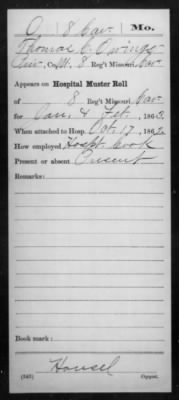 O. 8 Cav. Mo.
Thomas C. Owings
Co. M. 8 Reg't Missouri Cav.
Appears on Hospital Muster Roll
of 8 Reg't Missouri Cav.
for Jan. & Feb., 1863.
When attached to Hosp. Oct. 17, 1862
How employed Hospt. Cook
Present or absent Present
Remarks:
Book mark:
Housel
(543) Copyist.